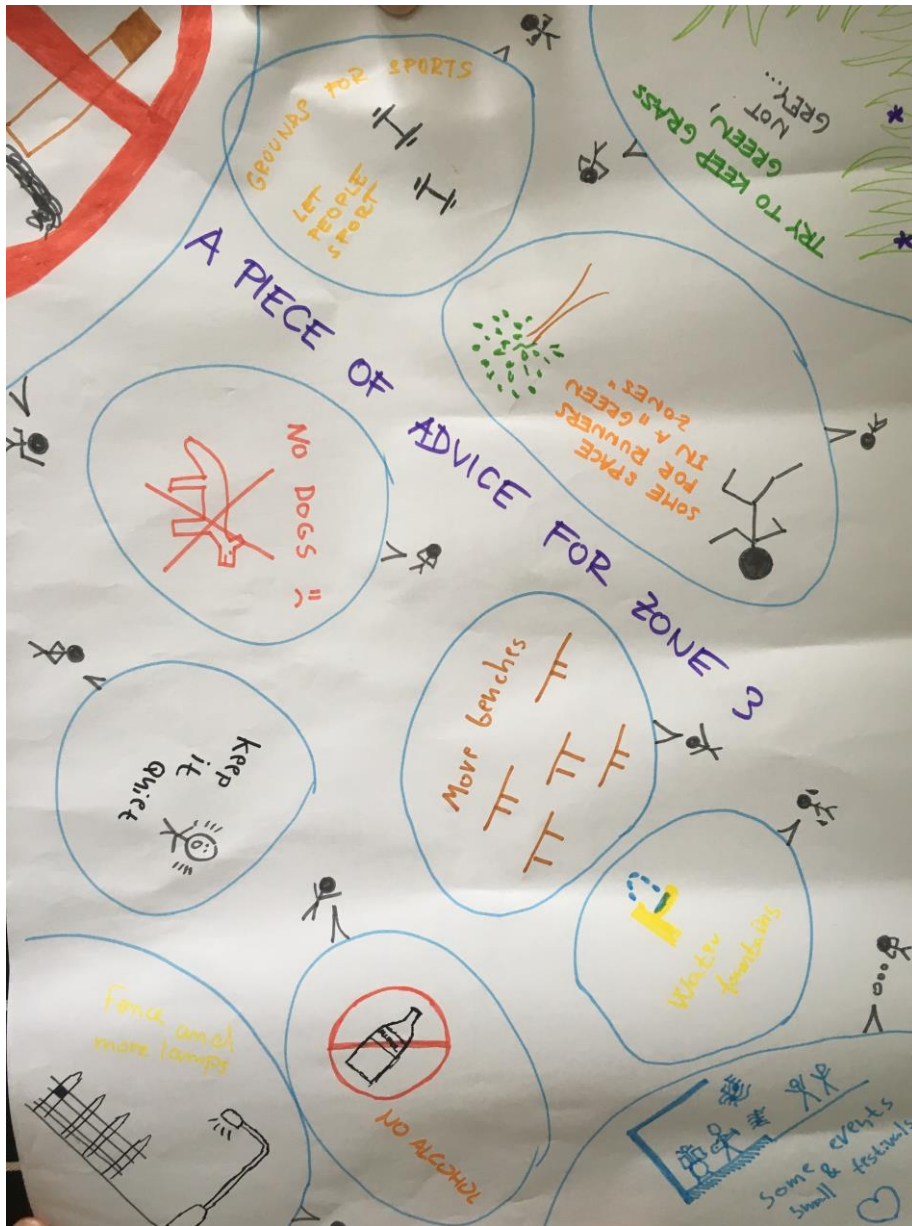 A PIECE OF ADVICE FOR ZONE 3
GROUNDS FOR SPORTS
LET
PEOPLE
SPORT
TRY TO KEEP GRASS
GREEN,
NOT
GREY...
SOME SPACE
FOR RUNNERS
IN A "GREEN
ZONES"
NO DOGS
More benches
keep
it
quiet
Water
fountains
Fence and
more lamps
NO ALCOHOL
Some events
& small festivals